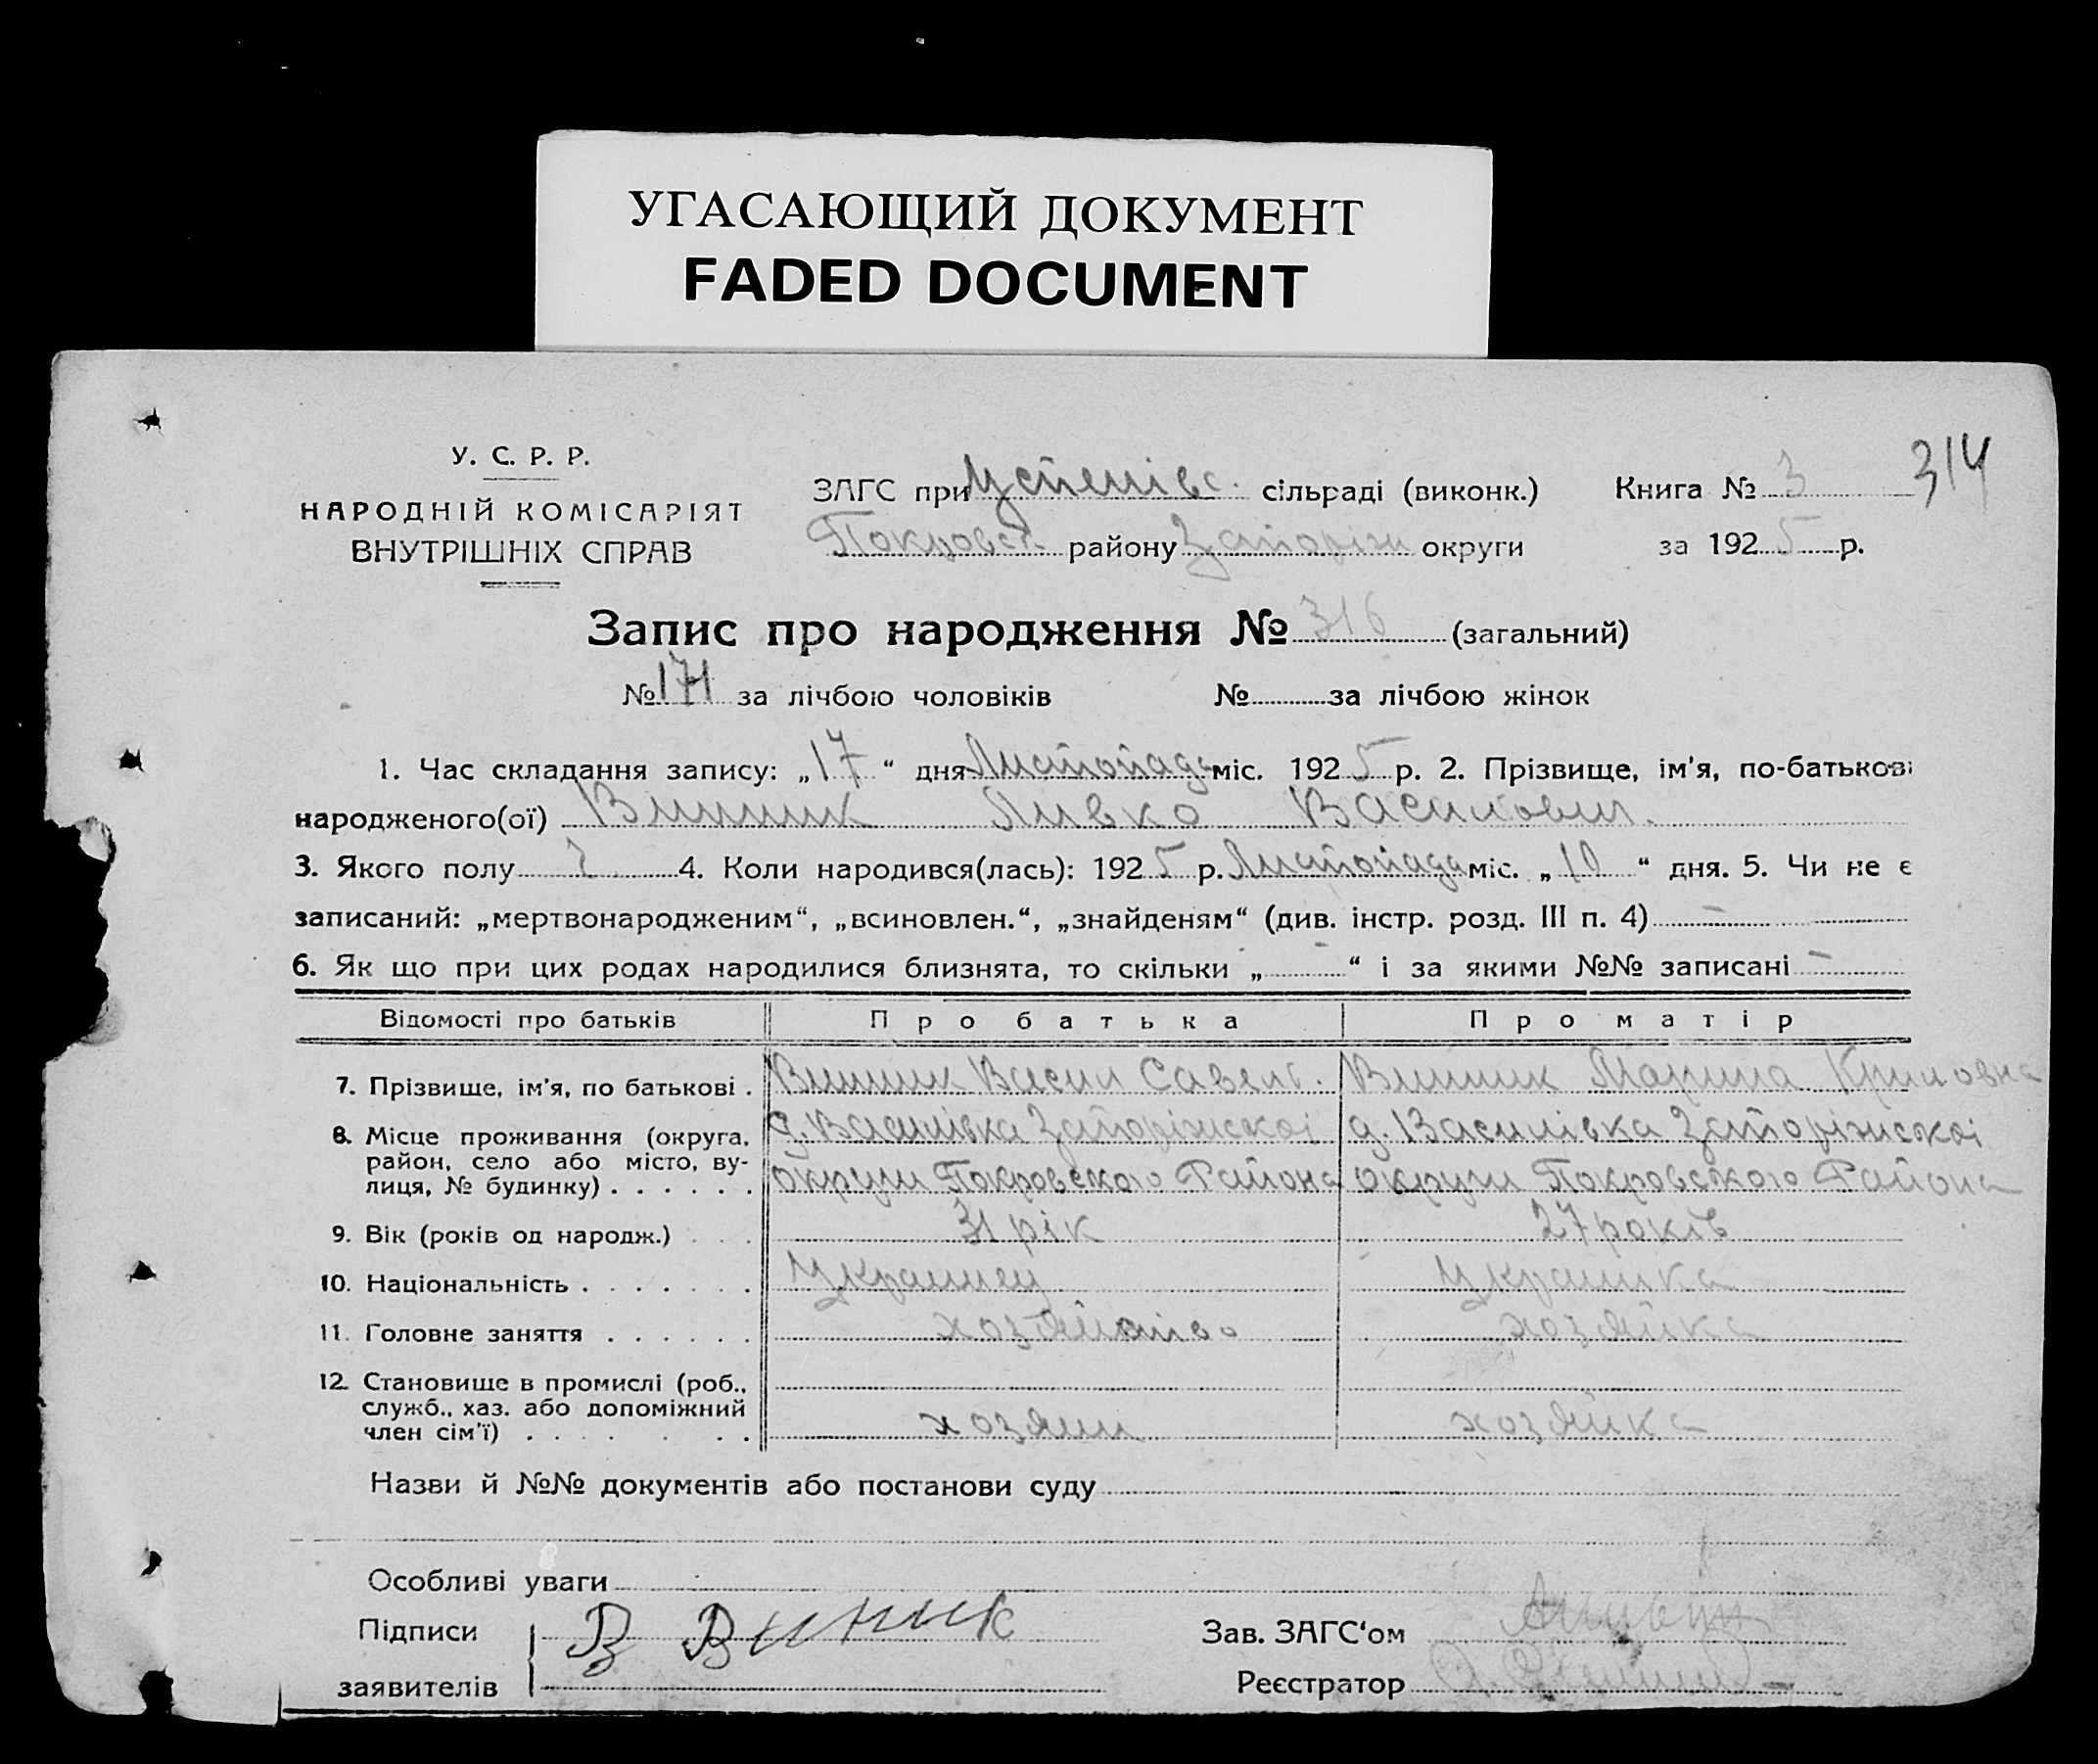 УГАСАЮЩИЙ ДОКУМЕНТ
FADED DOCUMENT
У. С. Р. Р.
НАРОДНІЙ КОМІСАРІЯТ
ВНУТРІШНІХ СПРАВ
ЗАГС при Успенівс. сільраді (виконк.)
Покровск районy Запоріжж округи
Книга № 3 314
за 1925 р.
Запис про народження № 316 (загальний)
№ 171 за лічбою чоловіків № за лічбою жінок
1. Час складання запису: „17“ дня Листопада міс. 1925 р. 2. Прізвище, ім'я, по-батькові
народженого(ої) Винник Ливко Василович.
3. Якого полу ч 4. Коли народився(лась): 1925 р. Листопада міс. „10“ дня. 5. Чи не є
записаний: „мертвонародженим“, „всиновлен.“, „знайденям“ (див. інстр. розд. III п. 4) –
6. Як що при цих родах народилися близнята, то скільки „ – “ і за якими №№ записані –
Відомості про батьків Про батька Про матір
7. Прізвище, ім'я, по батькові . Винник Васил Савел. Винник Марина Криловна
8. Місце проживання (округа, район, село або місто, вулиця, № будинку) . . . . . . д. Василівка Запоріжскоі д. Василівка Запоріжскоі
округи Покровского Района округи Покровского Района
9. Вік (років од народж.) . . . 31 рік 27 років
10. Національність . . . . . . . Украинец Украинка
11. Головне заняття . . . . . . хозяйство хозяйка
12. Становище в промислі (роб., служб., хаз. або допоміжний член сім'ї) . . . . . . хозяин хозяйка
Назви й №№ документів або постанови суду
Особливі уваги
Підписи В Виник Зав. ЗАГС‘ом
заявителів Реєстратор